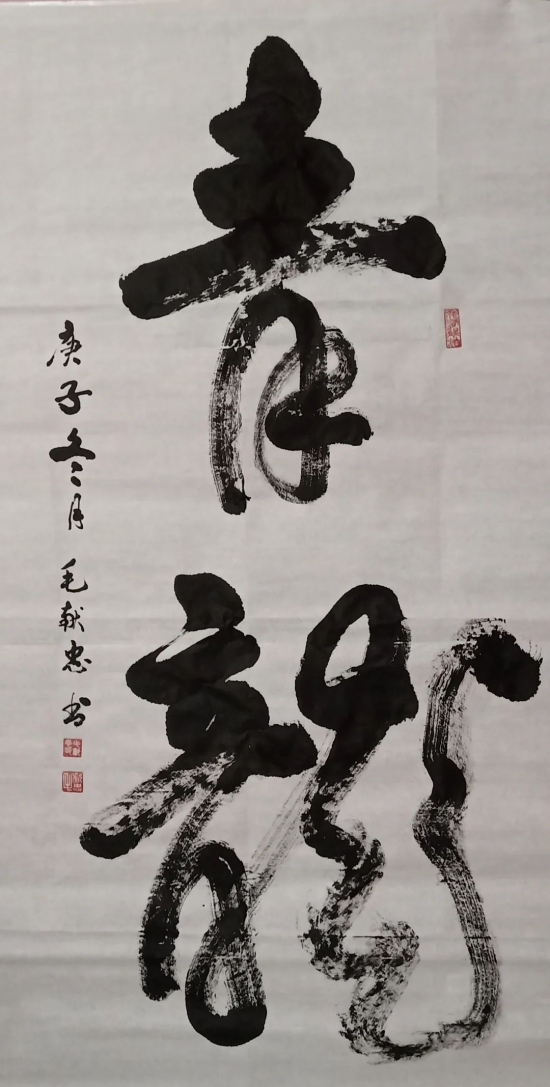 青龍
庚子冬月 毛献忠书